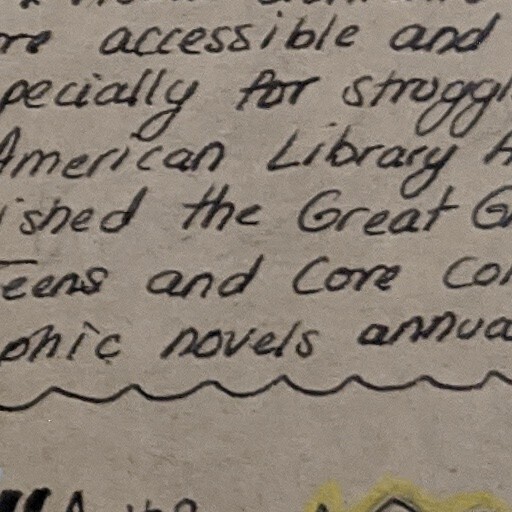 re accessible and
pecially for struggl
American Library A
ished the Great G
Teens and Core Col
phic novels annua